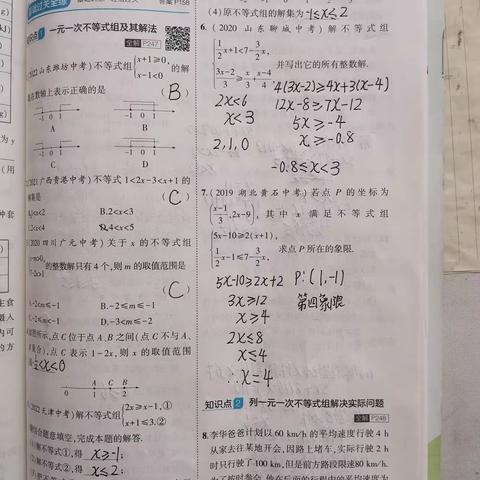 答案P158
知识点1 一元一次不等式组及其解法
全解 P247
山东潍坊中考)不等式组{x+1≥0,
x-1<0
的解
在数轴上表示正确的是 (B)
-1 0 1
-1 0 1
A
B
-1 0 1
-1 0 1
C
D
广西贵港中考)不等式1<2x-3<x+1的
(C)
B.2<x<3
D.4<x<5
2020四川广元中考)关于x的不等式组
的整数解只有4个,则m的取值范围是
(C)
A.-2<m≤-1
B.-2≤m≤-1
D.-3<m≤-2
如图所示,点C位于点A、B之间(点C不与A、
B重合),点C表示1-2x,则x的取值范围
-½<x<0
A C B
0 1 2
2022天津中考)解不等式组{2x≥x-1,①
x+1≤3.②
请结合题意填空,完成本题的解答.
解不等式①,得 x≥-1;
解不等式②,得 x≤2;
(4)原不等式组的解集为 -1≤x≤2
6.(2020山东聊城中考)解不等式组
{½x+1<7-3/2x,
(3x-2)/3≥x/3+(x-4)/4
并写出它的所有整数解.
4(3x-2)≥4x+3(x-4)
2x<6
12x-8≥7x-12
x<3
5x≥-4
2,1,0
x≥-0.8
-0.8≤x<3
7.(2019湖北黄石中考)若点P的坐标为
((x-1)/3,2x-9),其中x满足不等式组
{5x-10≥2(x+1),
½x-1≤7-3/2x,
求点P所在的象限.
5x-10≥2x+2
P:(1,-1)
3x≥12
第四象限
x≥4
2x≤8
x≤4
∴x=4
知识点2 列一元一次不等式组解决实际问题
全解 P248
8.李华爸爸计划以60 km/h的平均速度行驶4 h
从家去往某地开会,因路上堵车,实际行驶2 h
时只行驶了100 km,但是前方路段限速80 km/h.